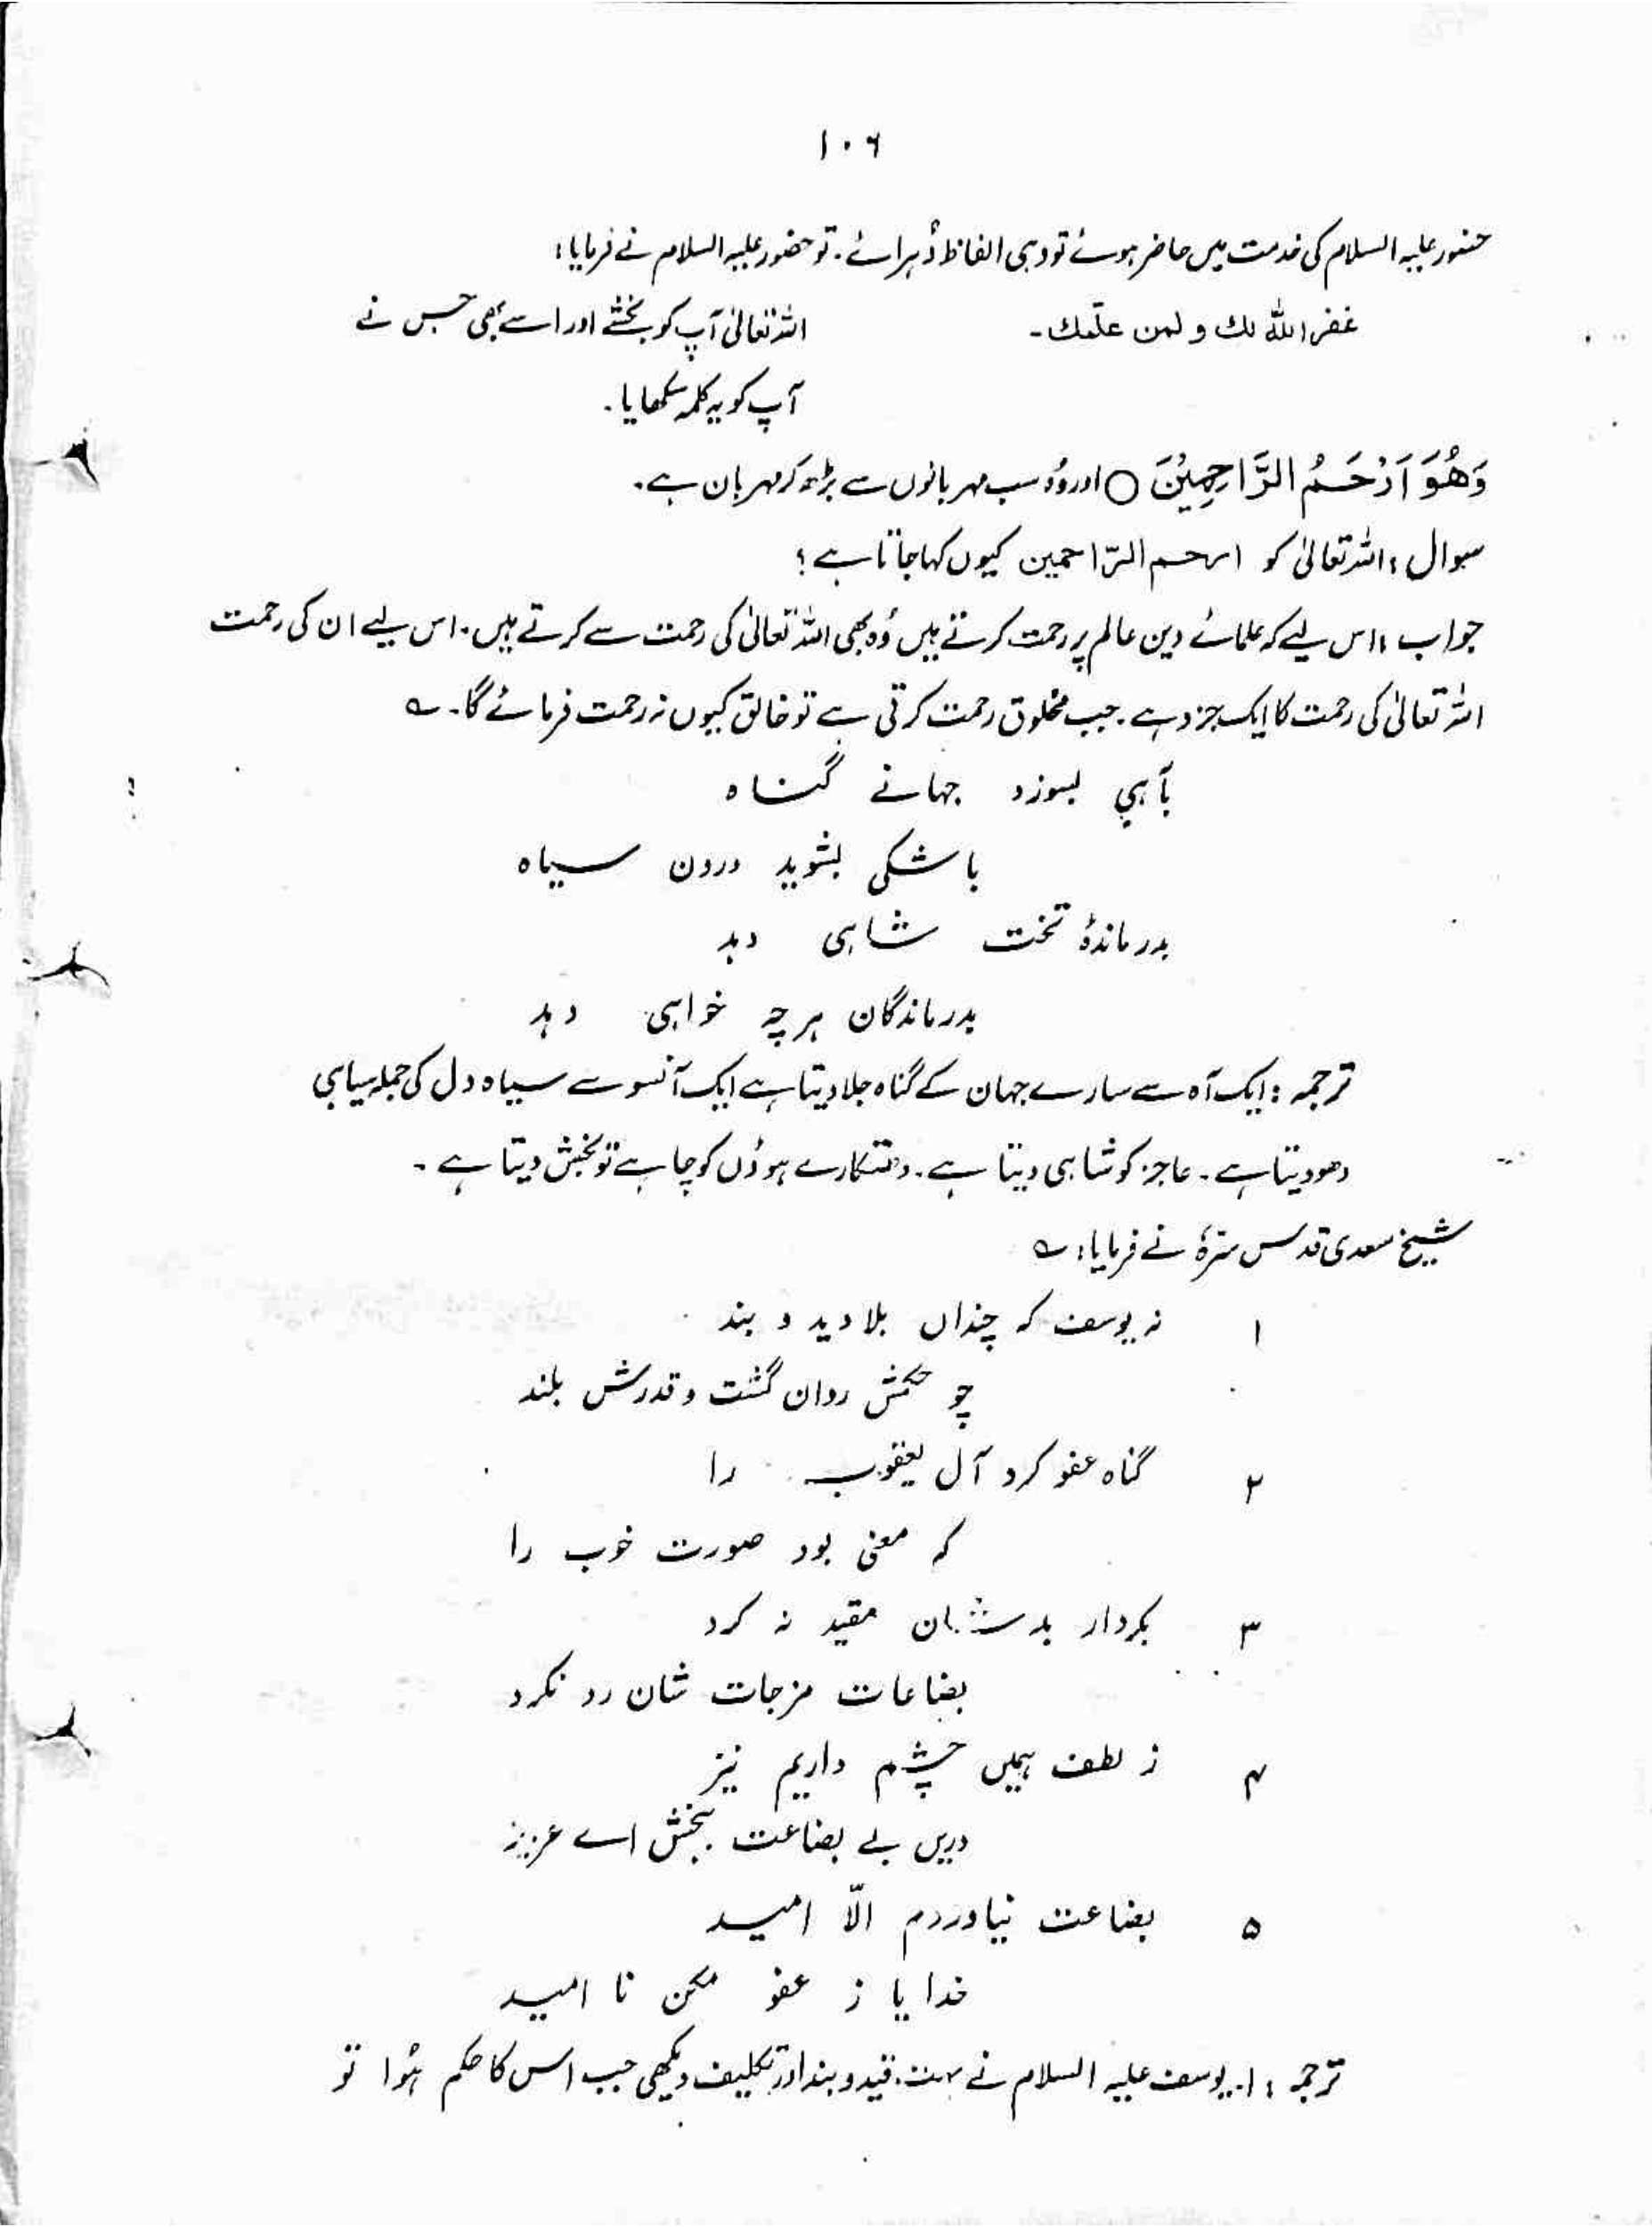 ۱۰۶
حضور علیہ السلام کی خدمت میں حاضر ہوئے تو وہی الفاظ دُہرائے۔ تو حضور علیہ السلام نے فرمایا:
غفر اللہ لك و لمن علّمك۔ اللہ تعالیٰ آپ کو بخشے اور اسے بھی جس نے
آپ کو یہ کلمہ سکھایا۔
وَهُوَ اَرْحَمُ الرَّاحِمِيْنَ ○ اور وُہ سب مہربانوں سے بڑھ کر مہربان ہے۔
سوال : اللہ تعالیٰ کو ارحم الرّاحمین کیوں کہا جاتا ہے ؟
جواب : اس لیے کہ علمائے دین عالم پر رحمت کرتے ہیں وُہ بھی اللہ تعالیٰ کی رحمت سے کرتے ہیں۔ اس لیے ان کی رحمت
اللہ تعالیٰ کی رحمت کا ایک جزو ہے۔ جب مخلوق رحمت کرتی ہے تو خالق کیوں نہ رحمت فرمائے گا۔ ؎
بآہی بسوزد جہانے گناہ
باشکی بشوید درون سیاہ
بدرماندۂ تخت شاہی دہد
بدرماندگان ہر چہ خواہی دہد
ترجمہ : ایک آہ سے سارے جہان کے گناہ جلا دیتا ہے ایک آنسو سے سیاہ دل کی جملہ سیاہی
دھو دیتا ہے۔ عاجز کو شاہی دیتا ہے۔ دھتکارے ہوؤں کو چاہے تو بخش دیتا ہے۔
شیخ سعدی قدس سرّہٗ نے فرمایا: ؎
۱ نہ یوسف کہ چنداں بلا دید و بند
چو حکمش روان گشت و قدرش بلند
۲ گناہ عفو کرد آل یعقوب را
کہ معنی بود صورت خوب را
۳ بکردار بدشان مقید نہ کرد
بضاعات مزجات شان رد نکرد
۴ ز لطف ہمیں چشم داریم نیز
دریں بے بضاعت ببخش اے عزیز
۵ بضاعت نیاوردم الّا امید
خدایا ز عفو مکن نا امید
ترجمہ : ۱۔ یوسف علیہ السلام نے بہت قید و بند اور تکلیف دیکھی جب اس کا حکم ہُوا تو